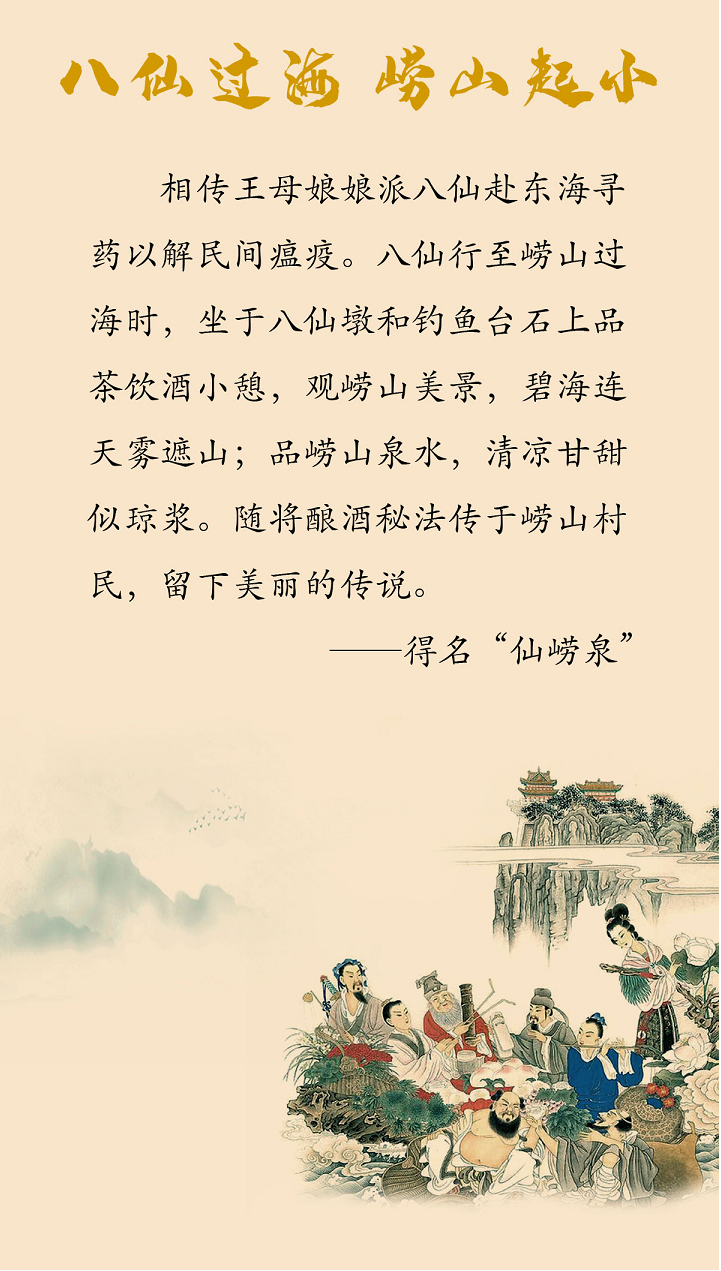 八仙过海 崂山起小
相传王母娘娘派八仙赴东海寻
药以解民间瘟疫。八仙行至崂山过
海时，坐于八仙墩和钓鱼台石上品
茶饮酒小憩，观崂山美景，碧海连
天雾遮山；品崂山泉水，清凉甘甜
似琼浆。随将酿酒秘法传于崂山村
民，留下美丽的传说。
——得名“仙崂泉”